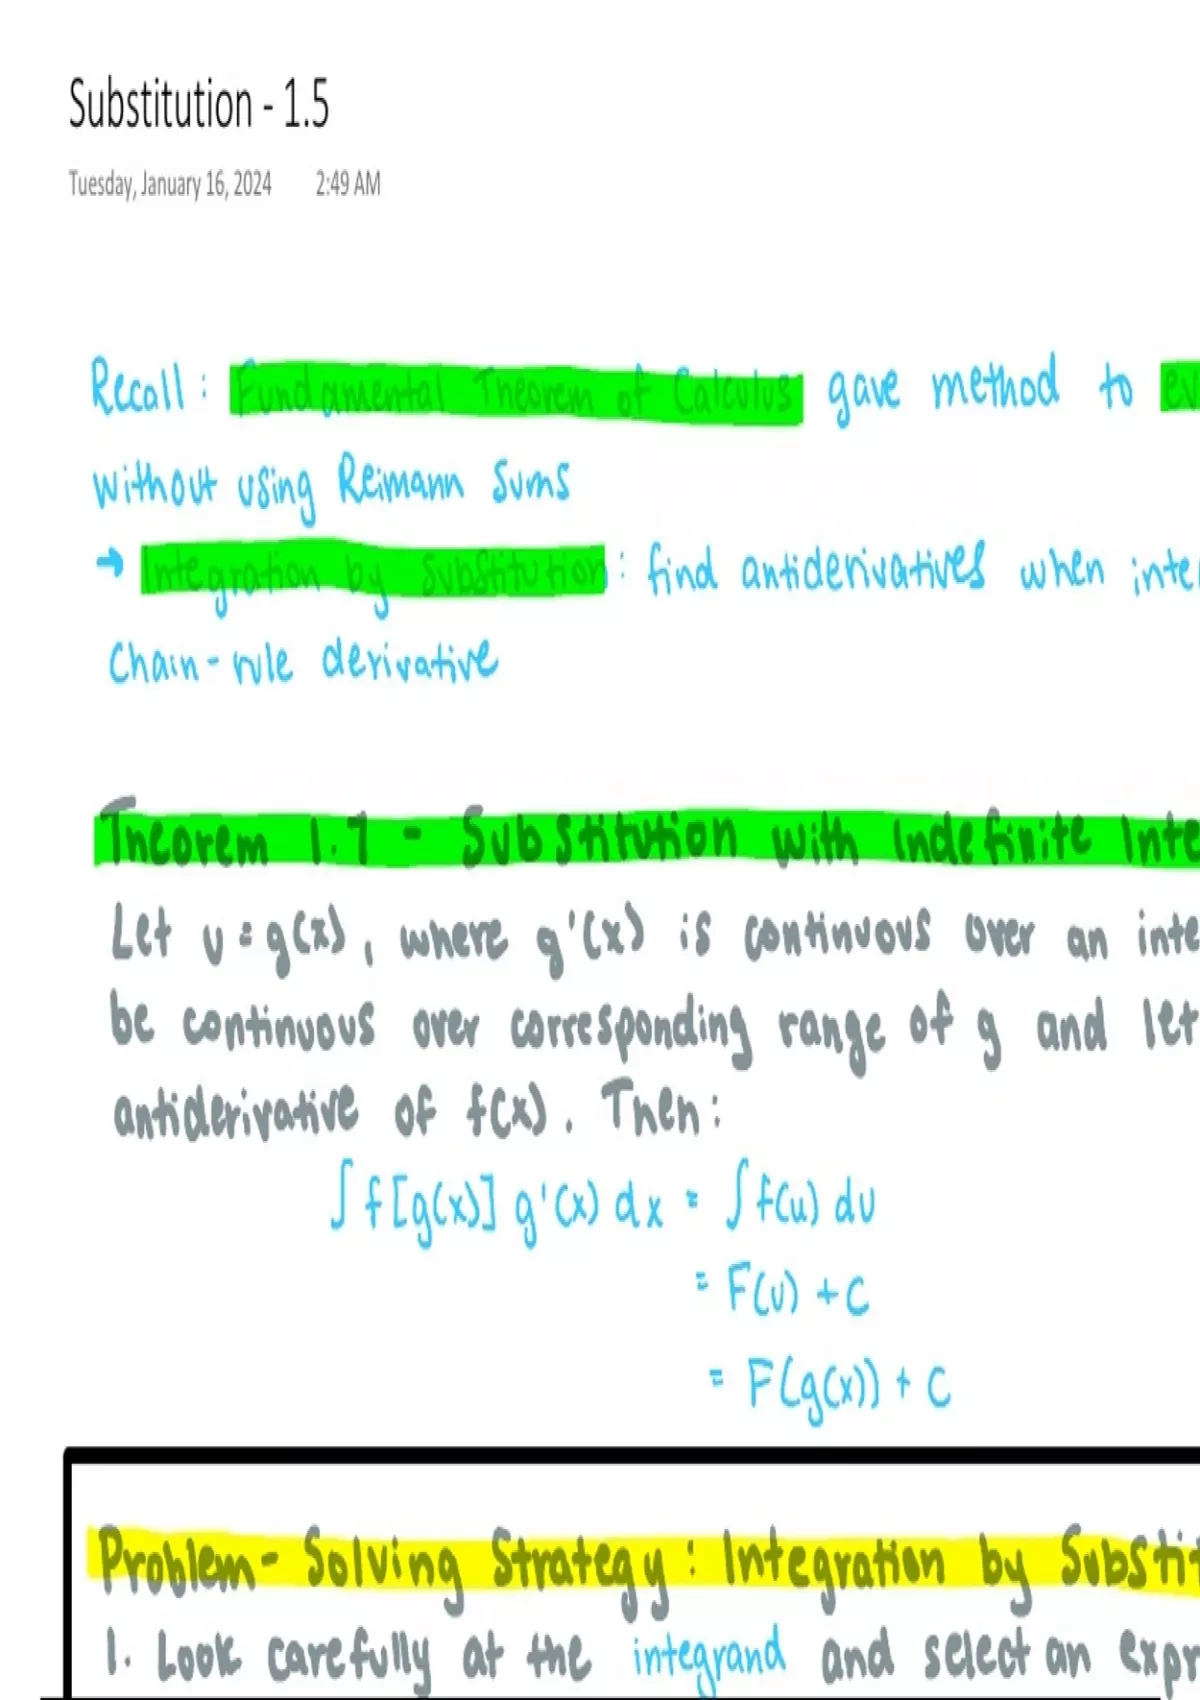 Substitution - 1.5
Tuesday, January 16, 2024 2:49 AM
Recall: Fundamental Theorem of Calculus gave method to ev
without using Reimann Sums
→ Integration by Substitution: find antiderivatives when inte
Chain-rule derivative
Theorem 1.7 - Substitution with Indefinite Inte
Let u = g(x), where g'(x) is continuous over an inte
be continuous over corresponding range of g and let
antiderivative of f(x). Then:
∫ f[g(x)] g'(x) dx = ∫ f(u) du
= F(u) + C
= F(g(x)) + C
Problem-Solving Strategy: Integration by Substit
1. Look carefully at the integrand and select an expr